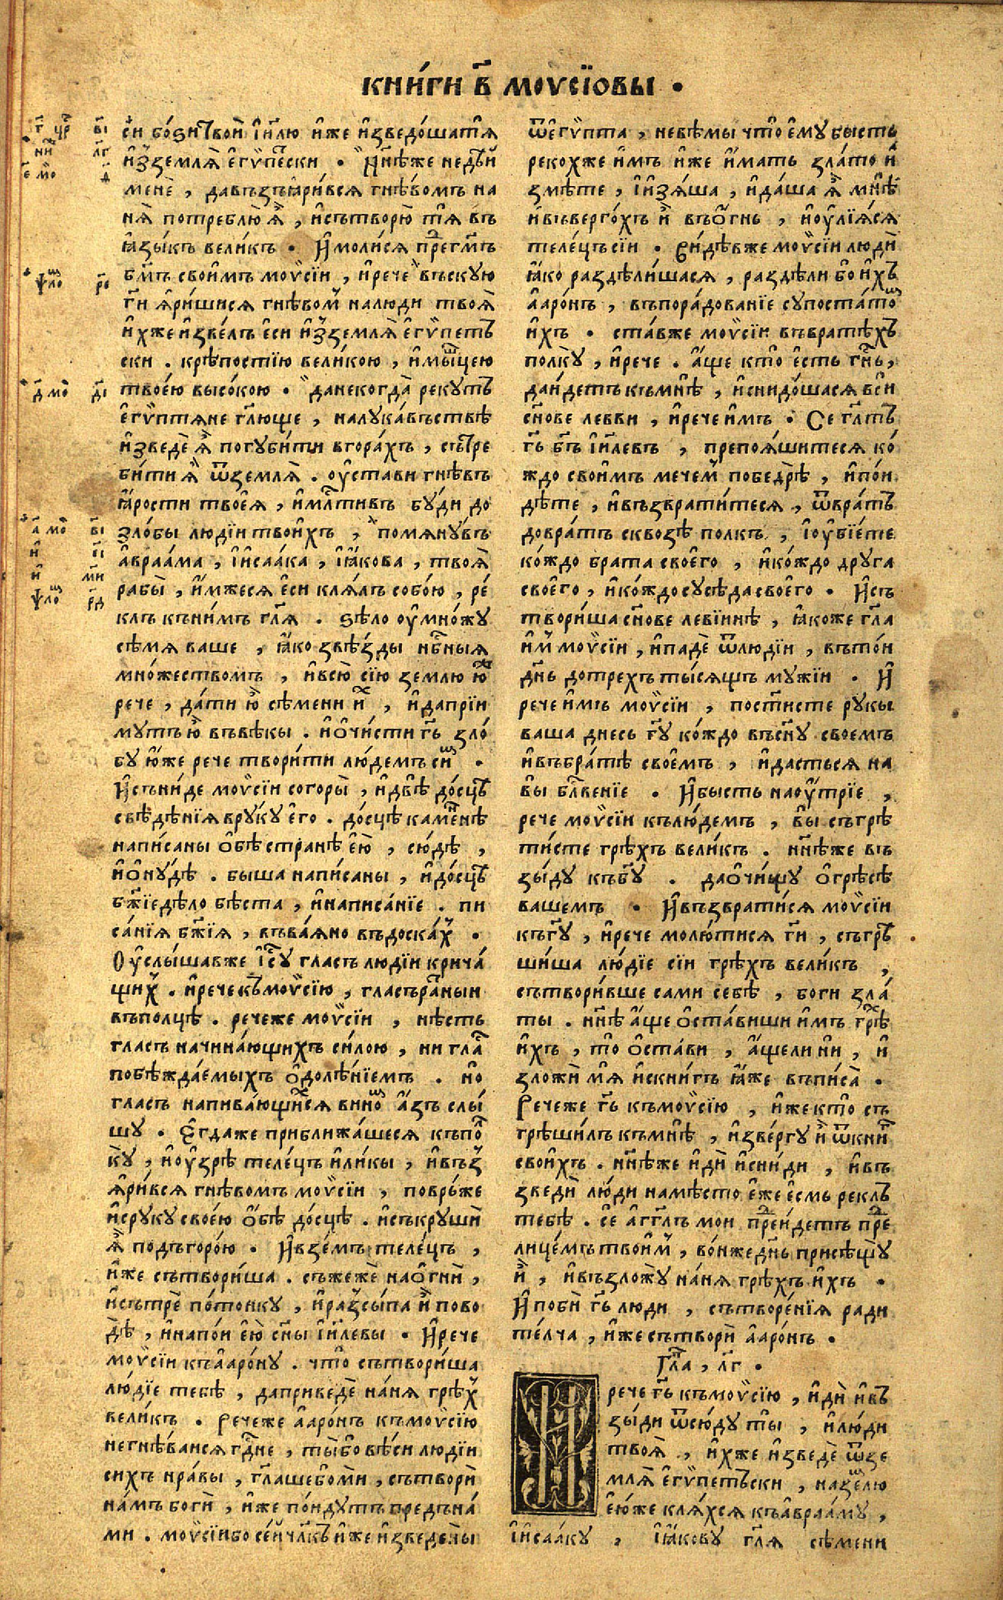 книги в҃ моѵсїовы .
си бо́зи твои̑ і҃илю и҆же и҆зведо́ша тѧ
и҆з̾ землѧ̀ е҆гѵ́пєски . Нн҃ѣже недѣи
менѐ , да въз̾ꙗри́всѧ гнѣ́вомъ на
нѧ̀ потреблю̀ ѧ҆̀ , и҆сътворю̀ тѧ въ
ꙗ҆зы́къ вели́къ . И҆ моли́сѧ пре гм҃ъ
бг҃мъ свои́мъ моѵ̈си́и , и҆рече въскую
гн҃и ꙗ҆ри́шисѧ гнѣвом̾ на люди твоѧ̀
и҆хже и҆зве́лъ е҆си и҆з̾ землѧ̀ е҆гѵ́петъ
ски . крѣ́постїю вели́кою , и҆мы́шцею
твое́ю высо́кою . да некогда̀ рекутъ
е҆гѵ́птѧне гл҃юще , на лука́вьствѣ
и҆зведѐ ѧ҆̀ погуби́ти в гора́хъ , сътре
би́ти ѧ҆̀ ѿ землѧ̀ . оу҆стави гнѣ́въ
ꙗ҆́рости твоеѧ̀ , и҆млⷭ҇тивъ бу́ди до
зло́бы людїи твои́хъ , помѧну́въ
а҆враа́ма , і҆и҆саа́ка , і҆ꙗ҆́кова , твоѧ̀
рабы̀ , и҆́мжесѧ е҆си клѧ́лъ собо́ю , ре́
клъ къни́мъ гл҃ѧ . ѕѣло оу҆мно́жу
сѣ́мѧ ваше , ꙗ҆ко звѣ́зды нбⷭ҇ныѧ
мно́жествомъ , и҆всю̀ сїю землю ю҆ж
рече , да́ти ю҆̀ сѣмени и҆х , и҆даприи́
муть ю҆̀ въвѣ́кы . и҆ ѡ҆чи́сти гь҃ зло́
бу ю҆́же рече твори́ти лю́демъ си́м .
И҆ сьни́де моѵси́и согоры̀ , и҆двѣ̀ до́сцѣ
свѣдѣ́нїѧ в руку̀ е҆го . до́сцѣ ка́менѣ
напи́саны ѻ҆бѣ странѣ̀ е҆ю̀ , сю́дѣ ,
и҆ѻ҆ну́дѣ . быша напи́саны , и҆до́сцѣ
бж҃їе дѣ́ло бѣ́ста , и҆написа́нїе . пи
са́нїѧ бж҃їѧ , въва́ѧно въдоска́х̾ .
Оу҆слы́шавже і҆с҃у гласъ людїи крича́
щих̾ . и҆рече къмоѵ̈сїю , гласъ ра́тныи
въ полцѣ . речеже моѵ̈си́и , нѣ́сть
гласъ начина́ющихъ си́лою , ни гла
побѣжда́емыхъ ѻ҆долѣ́нїемъ . но
гласъ напива́ющихсѧ вино́м а҆́зъ слы́
шу . Е҆гдаже приближа́шесѧ къ пол
ку̀ , и҆оу҆зрѣ теле́цъ и҆ ли́кы , и҆въз̾
ꙗ҆ри́всѧ гнѣ́вомъ моѵ̈си́и , повръ́же
и҆с руку свое́ю ѻ҆́бѣ до́сцѣ . и҆съкруши̑
ѧ҆̀ подъгоро́ю . И҆взе́мъ теле́цъ ,
и҆́же сътвори́ша . съжежѐ на ѻ҆гни̑ ,
и҆сътрѐ по́тонку , и҆раз̾сы́па и҆̀ пово
дѣ̀ , и҆напои́ е҆ю̀ сн҃ы і҆и҃левы . И҆рече
моѵси́и къ а҆аро́ну . что̀ сътвори́ша
лю́дїе тебѣ̀ , да приведѐ на́нѧ грѣ́х̾
вели́къ . Речеже а҆аро́нъ къ моѵсїю
негнѣ́ваисѧ гдⷭ҇не , ты̀ бо вѣ́си людїи
сихъ нра́вы , гл҃аше бо ми́ , сътвори̑
на́мъ боги̑ , и҆же по́идутъ предъ на́
ми . моѵси́ибо се́и чл҃къ и҆же и҆зведе́ны
ѿ е҆гѵпта , невѣ́мы что̀ е҆му бысть
рекохже и҆мъ и҆же и҆́мать злато и҆
змѣте , і҆и҆зѧ́ша , и҆да́ша ѧ҆̀ мнѣ
и҆въверго́хъ и҆̀ въ ѻ҆́гнь , и҆оу҆лїѧ́сѧ
теле́цъ сїи . Ви́дѣвже моѵси́и люди̑
ꙗ҆ко раздѣли́шасѧ , раздѣли бо и҆хъ
а҆аро́нъ , въ пора́дованїе супоста́том
и҆хъ . ста́вже моѵси́и въ вратѣ́хъ
полку̀ , и҆рече . а҆́ще кто̀ е҆сть гнⷭ҇ь ,
да и҆́детъ къ мнѣ̀ , и҆снидо́шасѧ вси
сн҃ове левви , и҆рече и҆мъ . Се гл҃етъ
гь҃ бг҃ъ і҆и҃левъ , препоѧ́шитесѧ ко́
ждо свои́мъ мечем̾ победрѣ̀ , и҆пои́
дѣте , и҆възврати́тесѧ , ѿ вра́тъ
до вратъ сквозѣ̀ полкъ , і҆оу҆бїе́те
ко́ждо брата своего̀ , и҆ко́ждо друга
своего̀ , и҆ко́ждо сусѣ́да своего̀ . И҆съ
твори́ша сн҃ове леві́инѣ , ꙗ҆коже гл҃а
и҆м̾ моѵси́и , и҆падѐ ѿ людїи , въ то́и
дн҃ь до трехъ ты́сѧщъ мужїи . И҆
рече и҆мъ моѵси́и , пости́сте рукы
ваша днесь гу҃ ко́ждо въ сн҃у своемъ
и҆въбра́тѣ своемъ , и҆ да́стьсѧ на
вы блⷭ҇вение . И҆бысть на оу҆́трїе ,
рече моѵси́и къ лю́демъ , вы̀ съгрѣ
ши́сте грѣхъ вели́къ . нн҃ѣже въ
зы́ду къ бг҃у . да ѻ҆чи́щу ѻ҆ грѣсѣ
вашемъ . И҆възврати́сѧ моѵси́и
къ гу҃ , и҆рече молю́тисѧ ги҃ , съгрѣ
ши́ша лю́дїе сїи грѣхъ вели́къ ,
сътвори́вше сами себѣ̀ , боги зла́
ты . нн҃ѣ а҆ще ѻ҆ста́виши и҆мъ грѣх
и҆хъ , то̀ ѻ҆ста́ви , а҆́щели ни̑ , и҆
зложи́ мѧ и҆скни́гъ ꙗ҆же въписа̀ .
Речеже гь҃ къ моѵсїю , и҆же кто̀ съ
грѣши́лъ къ мнѣ̀ , и҆зве́ргу и҆̀ ѿ книг
свои́хъ . нн҃ѣже и҆ди̑ и҆сни́ди , и҆въ
зведи̑ лю́ди намѣсто е҆́же е҆смь реклъ
тебѣ . се а҆гг҃лъ мои преи́детъ пре
лице́мъ твои́м̾ , во́ньже дн҃ь присѣщу̀
и҆̀ , и҆възложу̀ на́нѧ грѣхъ и҆хъ .
И҆ поби̑ гь҃ люди , сътворе́нїѧ ради
те́лча , и҆же сътвори̑ а҆аро́нъ .
Гл҃а , л҃г .
И рече гь҃ къ моѵсїю , и҆ди̑ и҆въ
зы́ди ѿсю́ду ты̀ , и҆лю́ди
твоѧ̀ , и҆хже и҆зведѐ ѿ зе
млѧ̀ е҆гѵ́петъски , на зе́млю
е҆ю́же клѧ́хсѧ къ а҆враа́му ,
і҆и҆саа́ку , і҆ꙗ҆́кову гл҃ѧ сѣмени